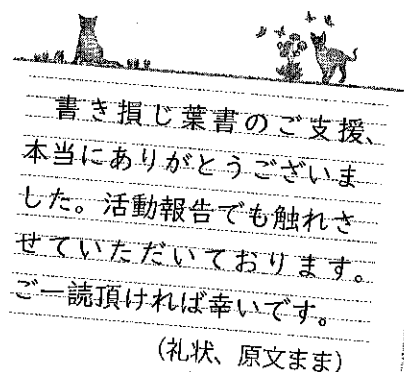 書き損じ葉書のご支援、
本当にありがとうございま
した。活動報告でも触れさ
せていただいております。
ご一読頂ければ幸いです。
(礼状、原文まま)